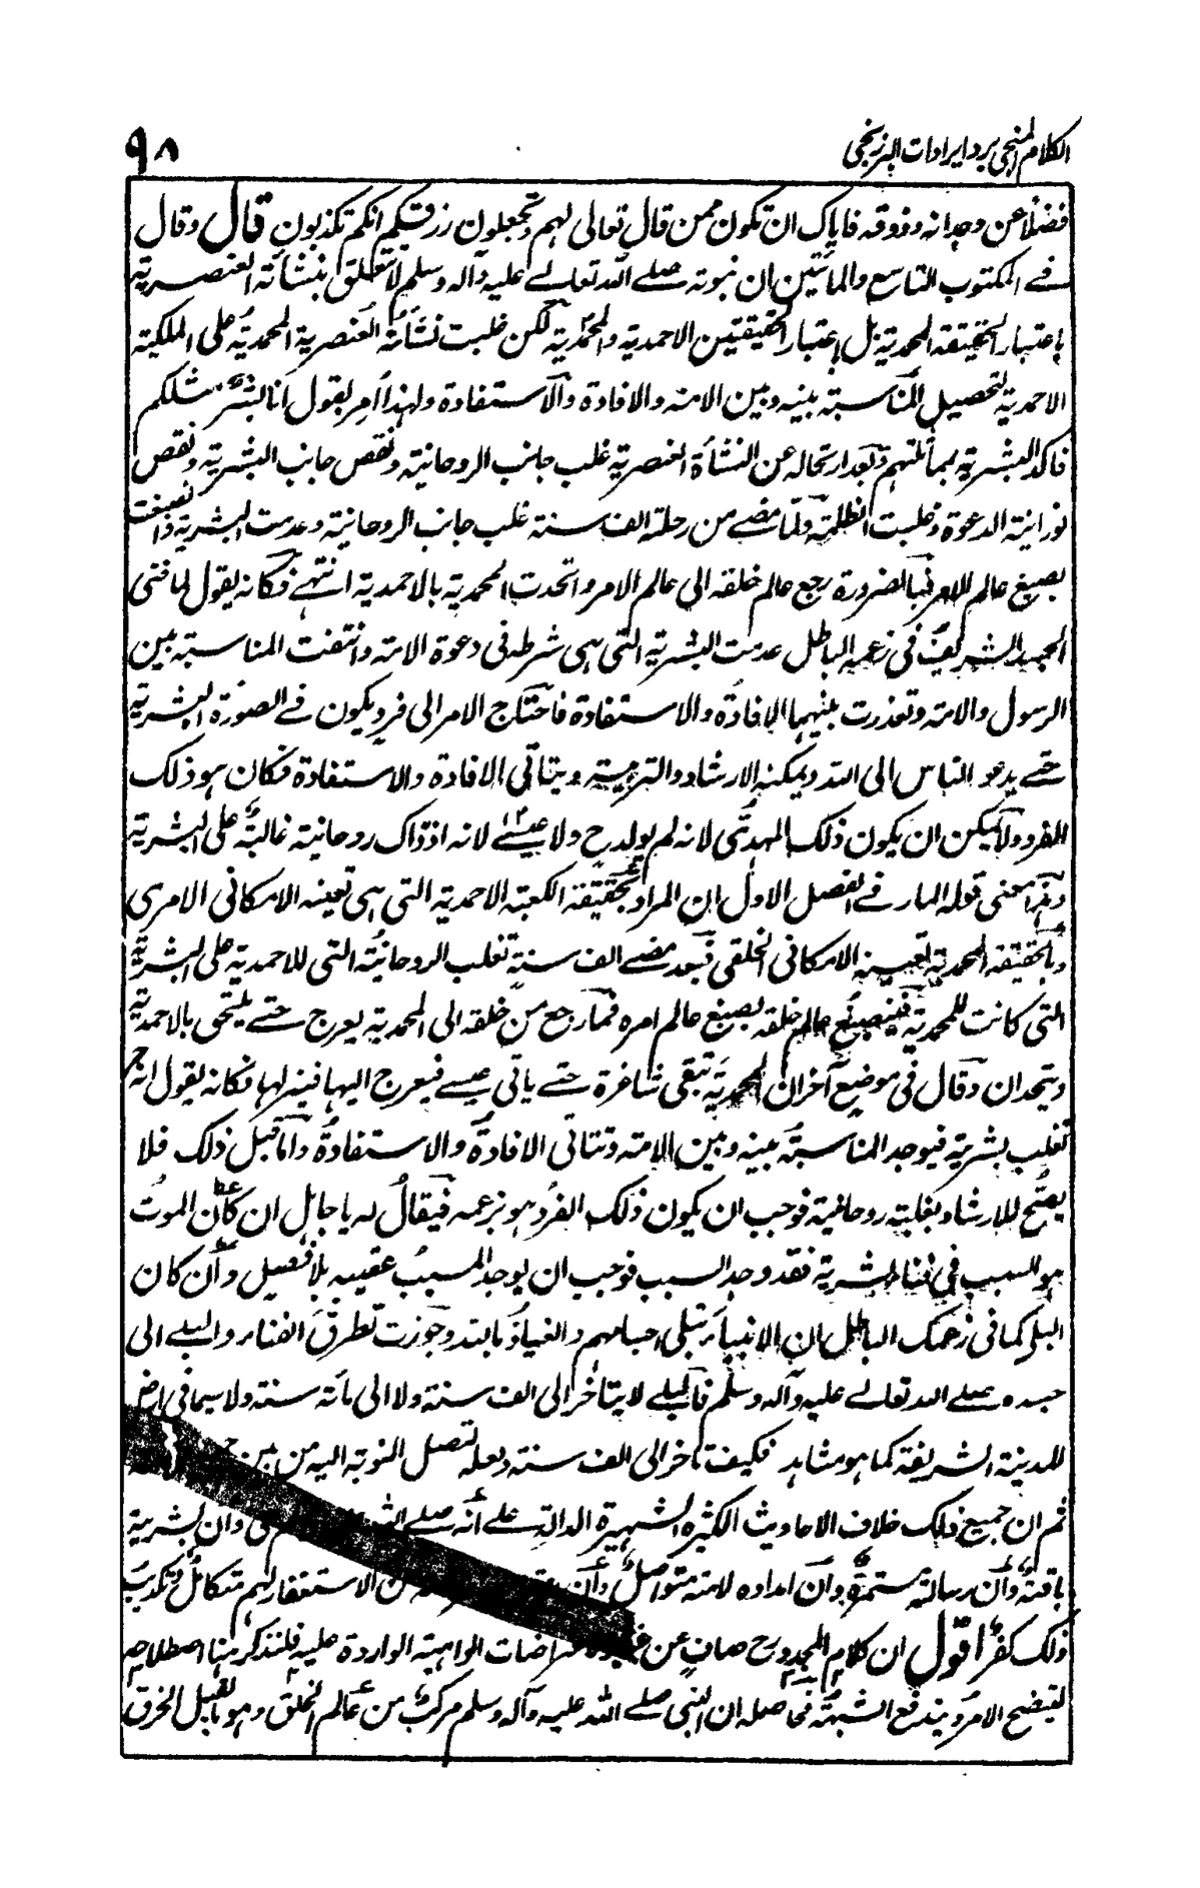 الكلام المنجى برد ايرادات البرزنجى
٩٨
فضلاً عن وجدانه وذوقه فاياك ان تكون ممن قال تعالى لهم وتجعلون رزقكم انكم تكذبون قال وقال
فے المكتوب التاسع والمأتين ان نبوته صلے اللہ تعالے عليه وآله وسلم لا تتعلق بنشأته العنصرية
باعتبار الحقيقة المحمدية بل باعتبار الحقيقتين الاحمدية والمحمدية لكن غلبت نشأته العنصرية المحمدية على الملكية
الاحمدية لتحصيل المناسبة بينه وبين الامة والافادة والاستفادة ولهذا امر بقول انا بشر مثلكم
فاكد البشرية بمماثلتهم وبعد ارتحاله عن النشأة العنصرية غلب جانب الروحانية ونقص جانب البشرية ونقص
نورانية الدعوة وغلبت الظلمة ولما مضے من رحلته الف سنة غلب جانب الروحانية وعدمت البشرية وانصبغت
بصبغ عالم الامر فبالضرورة رجع عالم خلقه الى عالم الامر واتحدت المحمدية بالاحمدية انتهے فكانه يقول لما فنى
الجسد الشريف فى زعمه الباطل عدمت البشرية التى هى شرط فى دعوة الامة وانتفت المناسبة بين
الرسول والامة وتعذرت بينهما الافادة والاستفادة فاحتاج الامر الى فرد يكون فے الصورة البشرية
حتے يدعو الناس الى اللہ ويمكنه الارشاد والتربية ويتأتى الافادة والاستفادة فكان هو ذلك
الفرد ولا يمكن ان يكون ذلك المهدى لانه لم يولد ح ولا عيسے لانه اذ ذاك روحانية غالبة على البشرية
وهذا معنى قوله المار فے الفصل الاول ان المراد بحقيقة الكعبة الاحمدية التى هى تعينه الامكانى الامرى
وبالحقيقة المحمدية تعينه الامكانى الخلقى فبعد مضے الف سنة تغلب الروحانية التى للاحمدية على البشرية
التى كانت للمحمدية فينصبغ عالم خلقه بصبغ عالم امره فما رجع من خلقه الى المحمدية يعرج حتے يلتحق بالاحمدية
ويتحدان وقال فى موضع آخر ان المحمدية تبقى شاغرة حتے ياتى عيسے فيعرج اليها فينزلها فكانه يقول انه ح
تغلب بشرية فيوجد المناسبة بينه وبين الامة وتتأتى الافادة والاستفادة واما قبل ذلك فلا
يصح للارشاد بغلبة روحانية فوجب ان يكون ذلك الفرد هو بزعمه فيقال له يا جاهل ان كان الموت
هو السبب فى فناء البشرية فقد وجد السبب فوجب ان يوجد المسبب عقيبه بلا فصيل وان كان
البلى كما فى زعمك الباطل ان الانبياء تبلى اجسامهم والعياذ باللہ وجوزت تطرق الفناء والبلے الى
جسده صلے اللہ تعالے عليه وآله وسلم فالبلے لا يتأخر الى الف سنة ولا الى مأة سنة ولا سيما فى ارض
المدينة الشريفة كما هو مشاهد فكيف تأخر الى الف سنة ولعله لتصل النوبة اليه من بين
ثم ان جميع ذلك خلاف الاحاديث الكثيرة الشهيرة الدالة علے انه صلے وان البشرية
باقية وان رسالته مستمرة وان امداده لامته متواصل وان الاستغفار لهم متكامل وتكذيب
ذلك كفر اقول ان كلام المجدد رح صاف عن الواهية الواردة عليه فلنذكر ههنا اصطلاحه
ليتضح الامر ويندفع الشبهة فحاصله ان النبى صلے اللہ عليه وآله وسلم مركب من عالم الخلق وهو يقبل الخرق